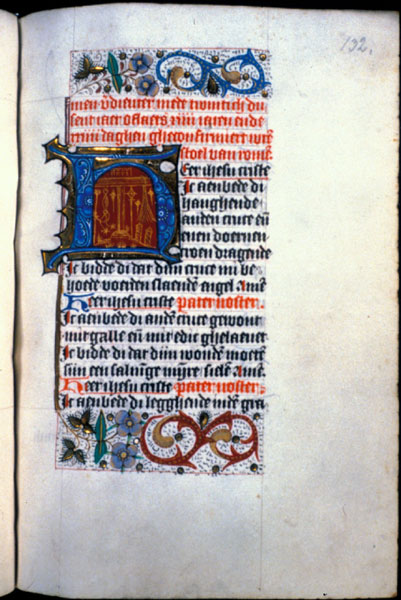 132.
men v̄dienter mede twintich du
sent iaer ōflaets xiiii iaren ende
xxiiii daghen gheconfirmiert
stoel van romē.
Heer ihesu criste
ic aenbede di
hanghende
anden cruce eñ
enen doernen
croen draghende
Ic bidde di dat dijn cruce mi be
hoede vanden slaende angel. Amē
Heer ihesu criste pater noster.
Ic aenbede di andē cruce gewont
mit galle eñ mit edic ghelauet
Ic bidde di dat dijn wondē moetē
sijn een salinge mijnre sielē. Amē
Heer ihesu criste pater noster.
Ic aenbede di legghende indē gra